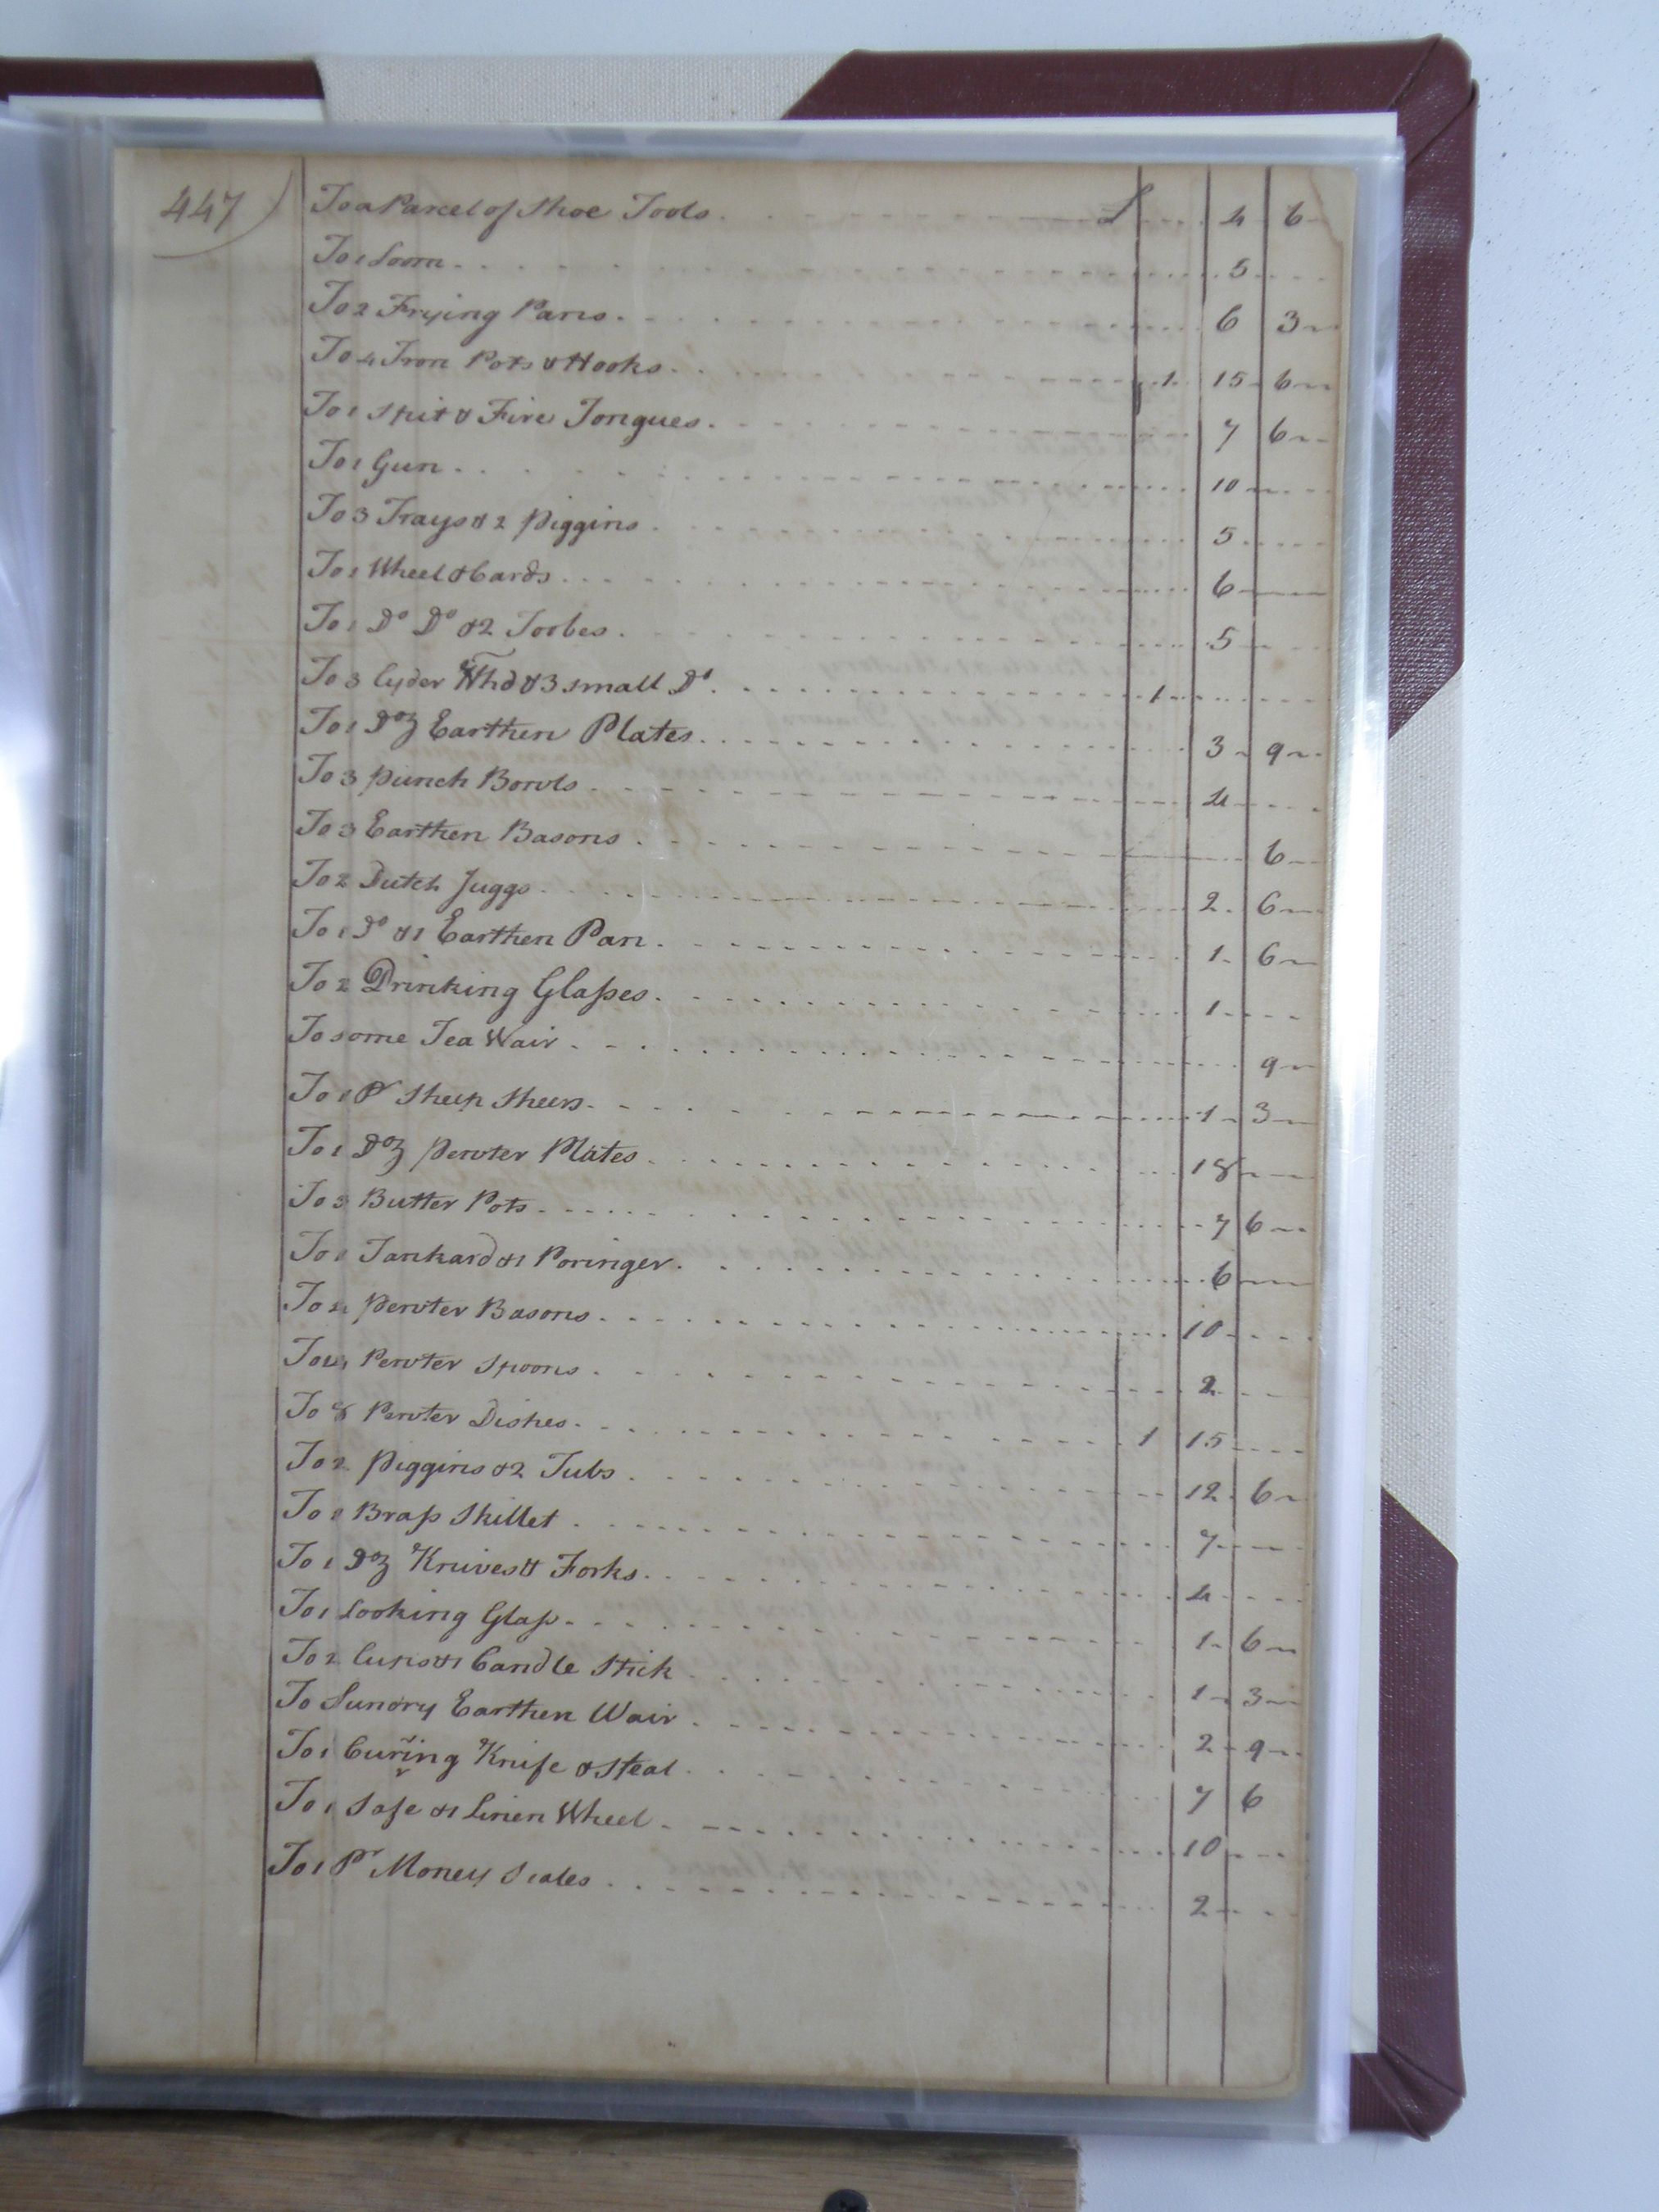 447) To a Parcel of Shoe Tools £ 4 6
To 1 Loom 5
To 2 Frying Pans 6 3
To 4 Iron Pots & Hooks 1 15 6
To 1 Spit & Fire Tongues 7 6
To 1 Gun 10
To 3 Trays & 2 Piggins 5
To 1 Wheel & Cards 6
To 1 Do Do & 2 Toobes 5
To 3 Cyder Hhd & 3 small Do 1
To 1 Doz Earthen Plates 3 9
To 3 punch Bowls 4
To 3 Earthen Basons 6
To 2 Dutch Juggs 2 6
To 1 Do & 1 Earthen Pan 1 6
To 2 Drinking Glaßes 1
To some Tea Wair 9
To 1 Pr Sheep Sheers 1 3
To 1 Doz pewter Plates 18
To 3 Butter Pots 7 6
To 1 Tankard & 1 Poringer 6
To 4 pewter Basons 10
To Pewter Spoons 2
To 8 Pewter Dishes 1 15
To 2 piggins & 2 Tubs 12 6
To 1 Braß Skillet 7
To 1 Doz Knives & Forks 4
To 1 Looking Glaß 1 6
To 2 Cups & 1 Candle Stick 1 3
To Sundry Earthen Wair 2 9
To 1 Curring Knife & Steal 7 6
To 1 Safe & 1 Linen Wheel 10
To 1 Pr Money Scales 2